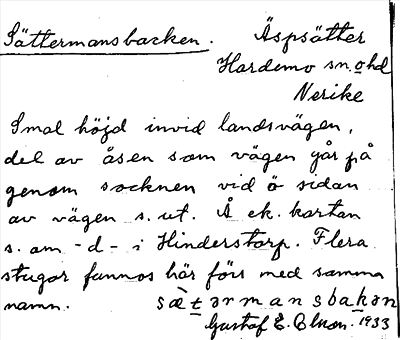 Sättermansbacken. Äspsätter
Hardemo sn. o hd
Nerike
Smal höjd invid landsvägen,
del av åsen som vägen går på
genom socknen vid ö sidan
av vägen s. ut. Å ek. kartan
s. om -d- i Hinderstorp. Flera
stugor funnos här förr med samma
namn. sæ̀tərmansbakən
Gustaf E. 1933